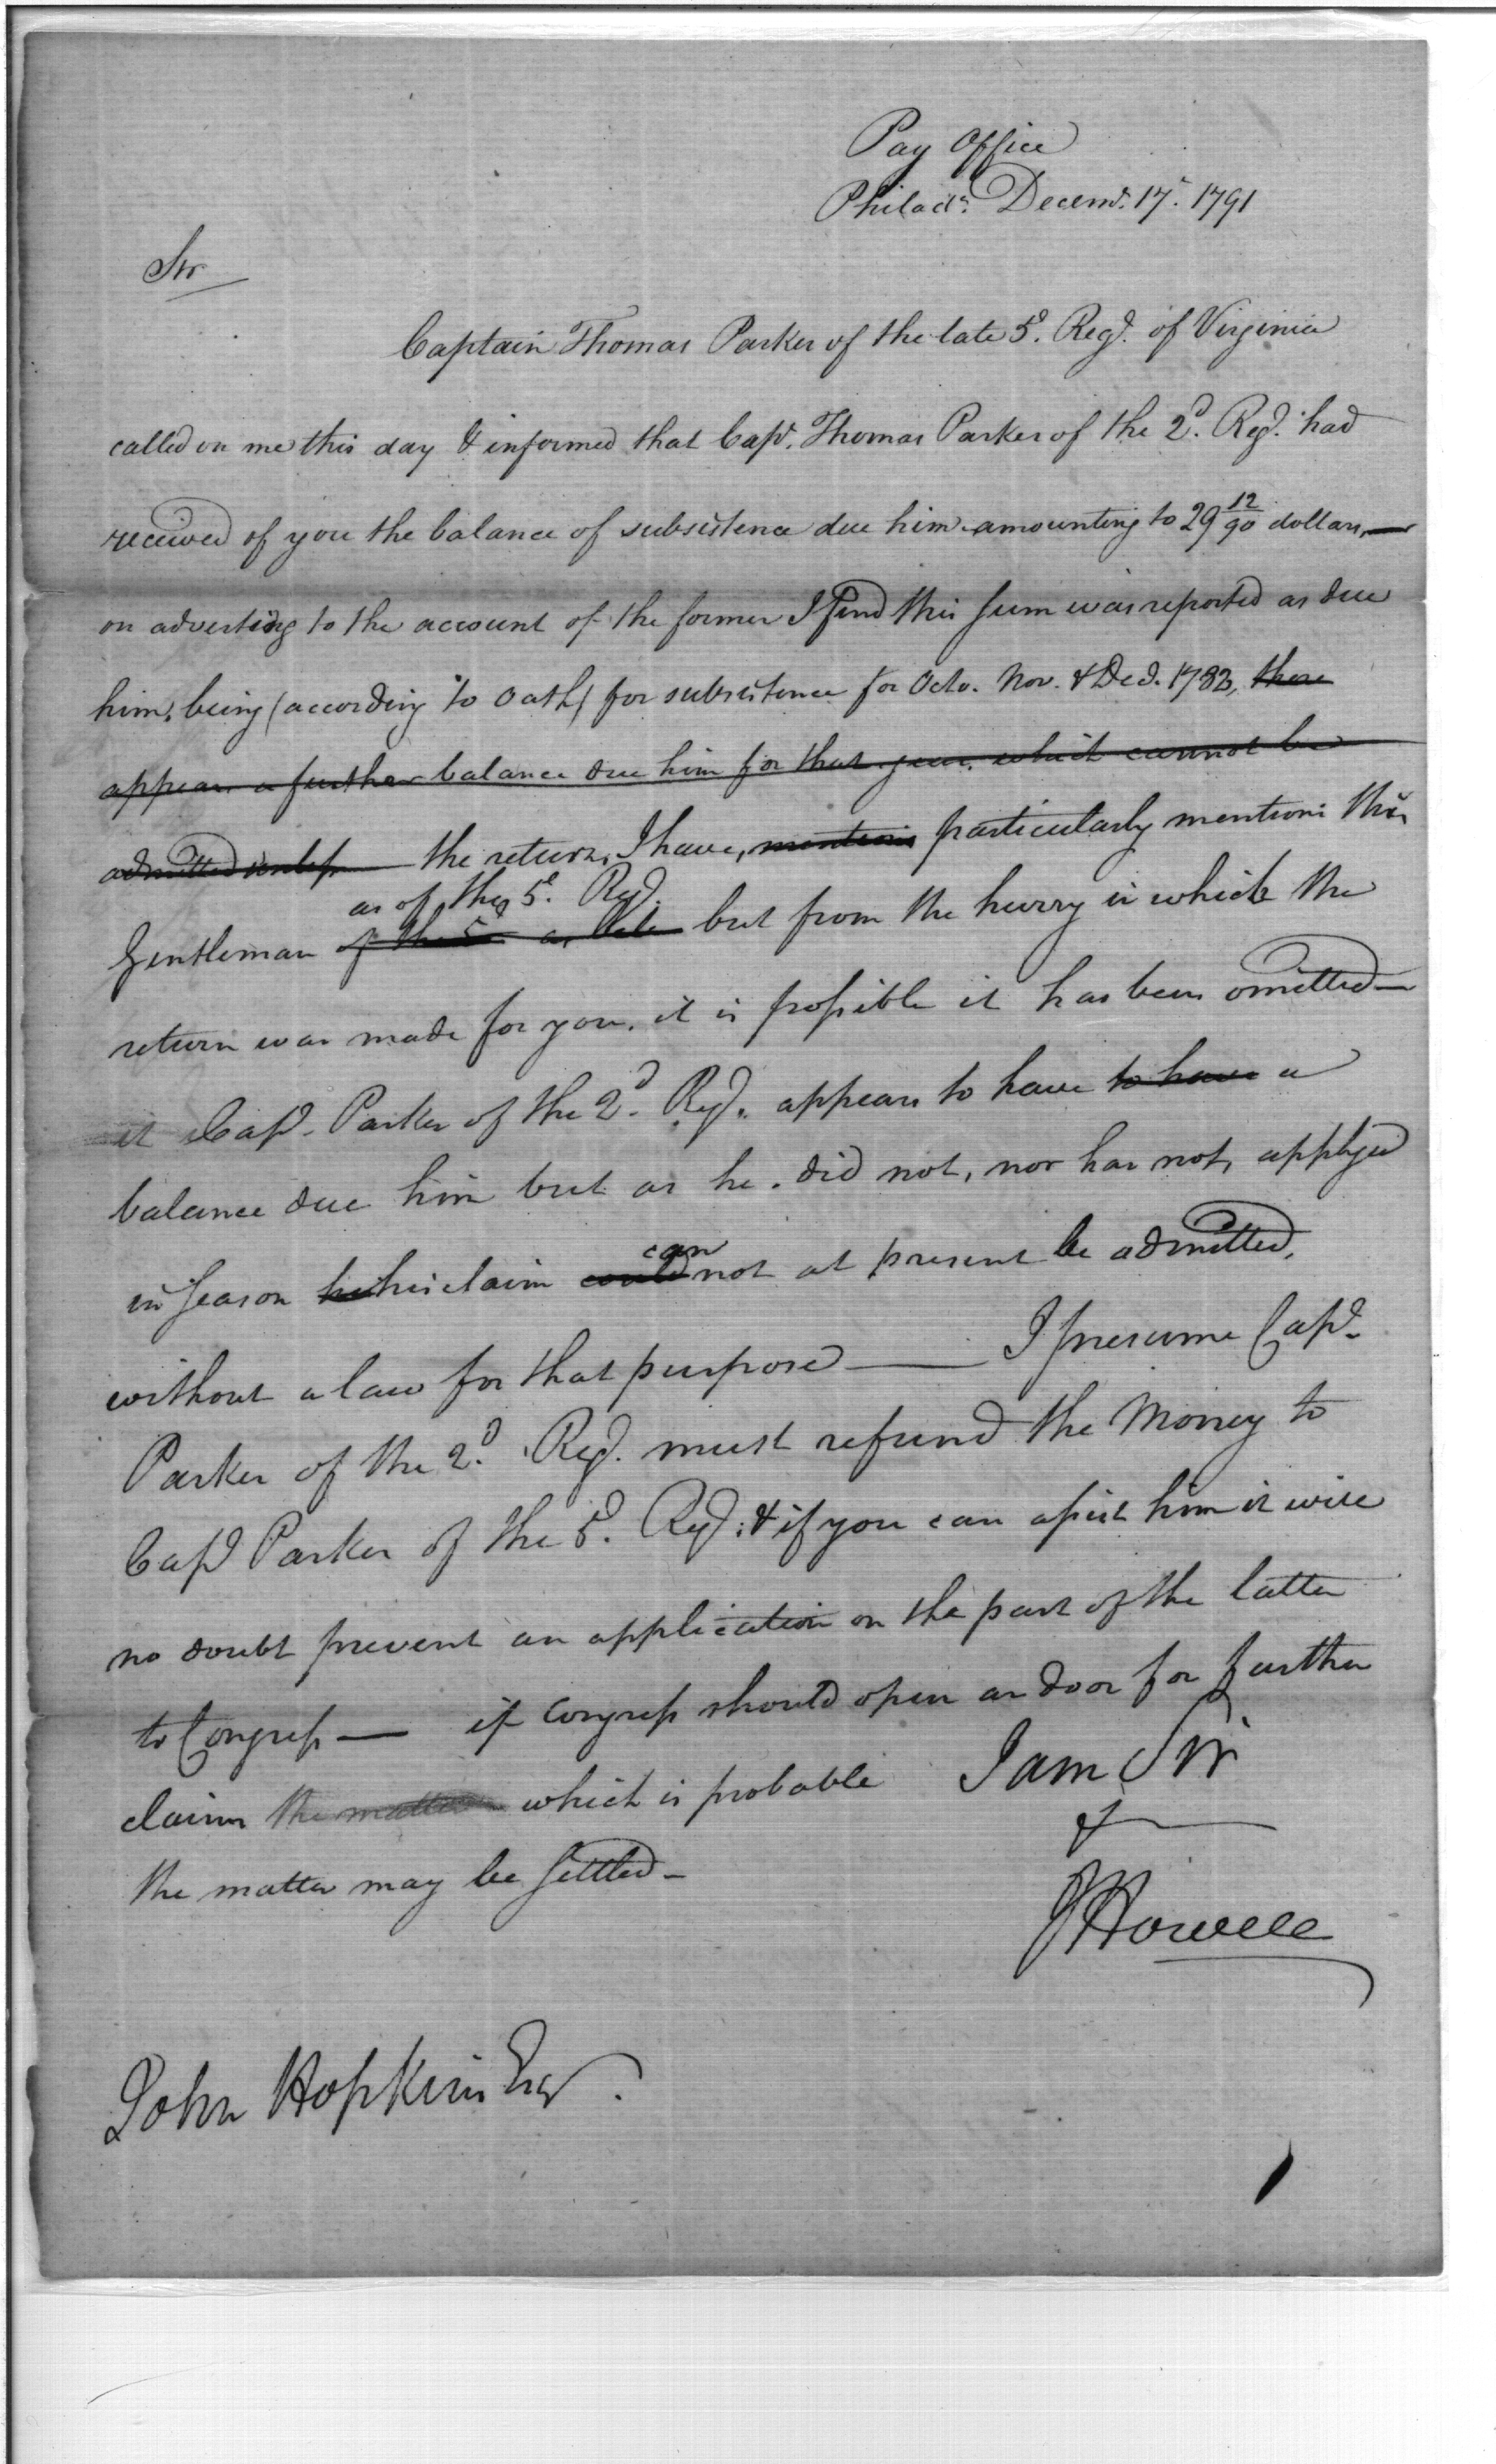 Pay Office
Philada. Decemr. 17. 1791
Sir
Captain Thomas Parker of the late 5d. Regt. of Virginia
called on me this day & informed that Capt. Thomas Parker of the 2d. Regt. had
received of you the balance of subsistence due him amounting to 29 12/90 dollars,—
on adverting to the account of the former I find this sum was reported as due
him, being (according to Oath) for subsistence for Octo. Nov. & Dec. 1782, there
appears a further balance due him for that year. which cannot be
admitted unless the return, I have, mentions particularly mentions this
as of the 5d. Regt.
Gentleman of the 5d as late but from the hurry in which the
return was made for you, it is possible it has been omitted—
it Capt. Parker of the 2d. Regt. appears to have to have a
balance due him but as he did not, nor has not, applyed
can
in season his claim could not at present be admitted,
without a law for that purpose — I presume Capt.
Parker of the 2d. Regt. must refund the Money to
Capt Parker of the 5d. Regt: & if you can assist him it will
no doubt prevent an application on the part of the latter
to Congress — if Congress should open an door for further
claims the matter which is probable I am Sir
the matter may be settled— &
JHowell
John Hopkins Esqr.